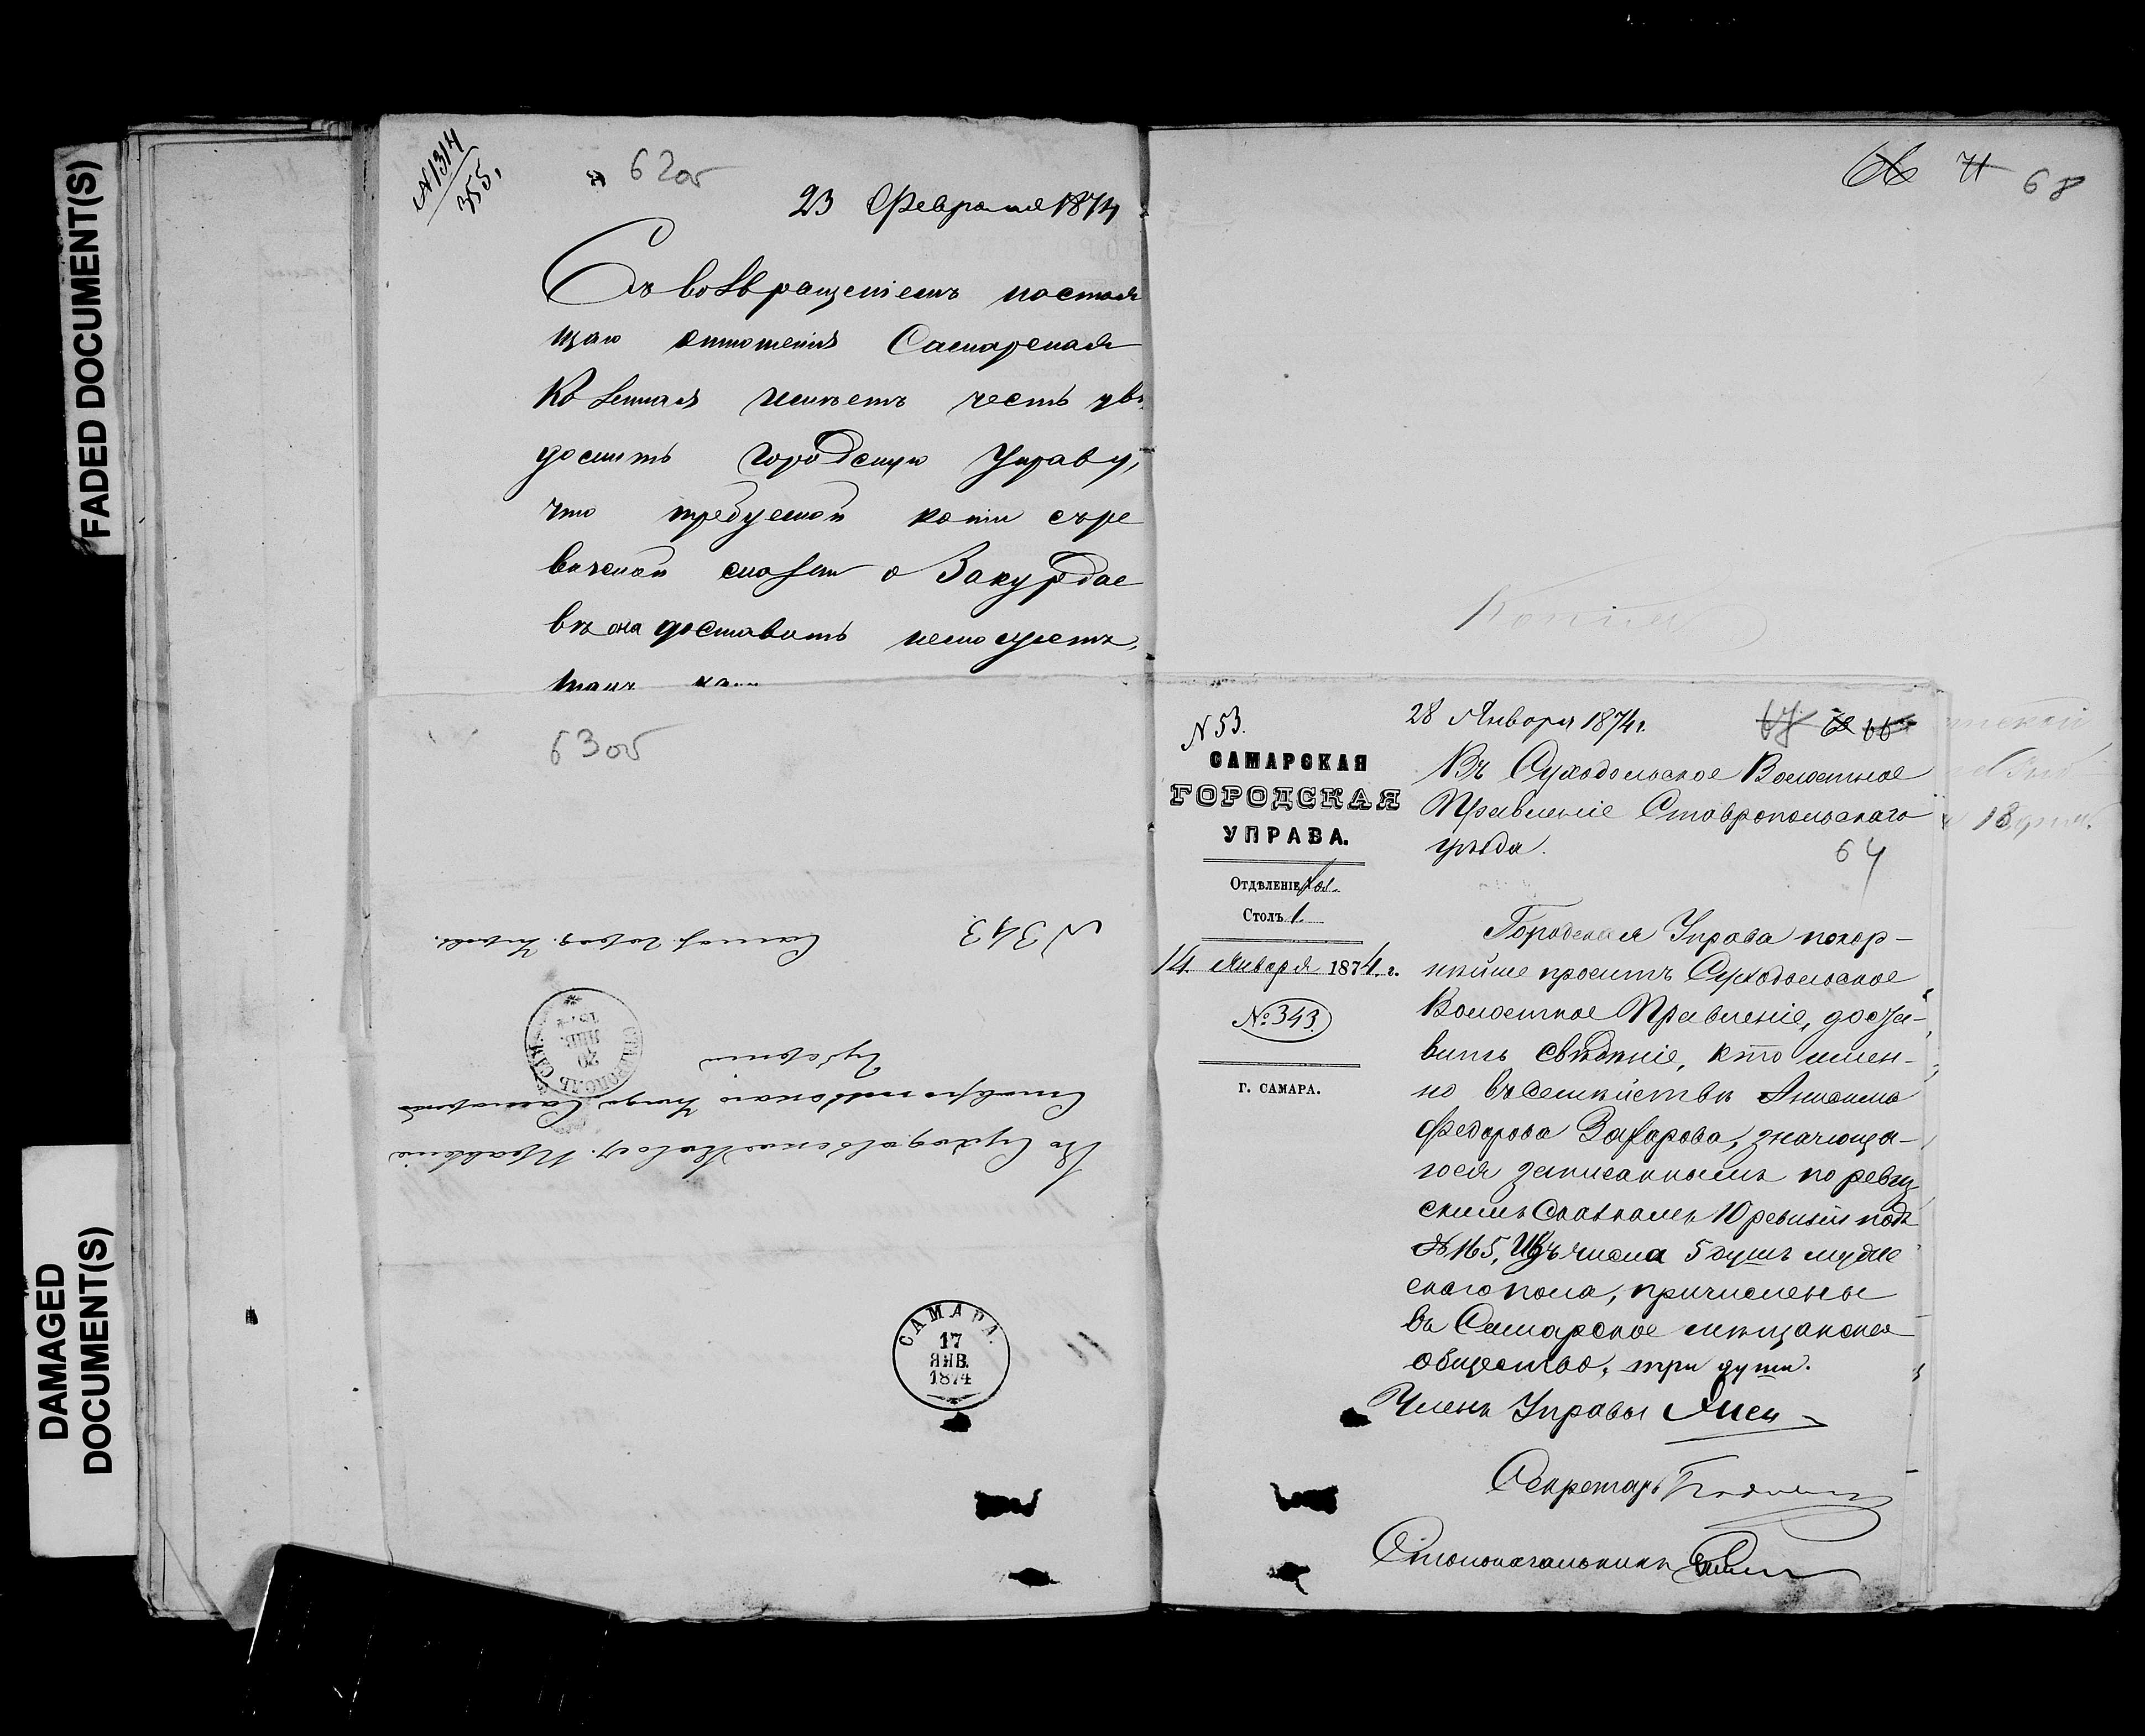 FADED DOCUMENT(S)
DAMAGED
DOCUMENT(S)
№ 1314
355.
62 об
23 Февраля 1874
Съ возвращеніемъ настоя
щаго отношенія Самарская
Казенная имѣетъ честь увѣ
домить Городскую Управу,
что требуемой копіи съ ре
визской сказки о Закурдае
въ она доставить не можетъ,
63 об
№ 343
Самар. Город. Управ.
Въ Суходольское Волос. Правленіе
Ставропольскаго Уѣзда Самарской
Губерніи
20
ЯНВ.
САМАРА.
17
ЯНВ.
1874
71
68
Копія
№ 53.
28 Января 1874 г.
САМАРСКАЯ
ГОРОДСКАЯ
УПРАВА.
Отдѣленіе
Столъ 1.
14 Января 1874 г.
№ 343.
Г. САМАРА.
Въ Суходольское Волостное
Правленіе Ставропольскаго
уѣзда.
64
Городская Управа покор-
нѣйше проситъ Суходольское
Волостное Правленіе, доста-
вить свѣденіе, кто имен-
но въ семействѣ Анисима
Федорова Захарова, значуща-
гося записаннымъ по ревиз
скимъ сказкамъ 10 ревизіи подъ
№ 165, изъ числа 5 душъ муже
скаго пола, причислены
въ Самарское мѣщанское
общество, три души.
Членъ Управы
Секретарь
Столоначальникъ